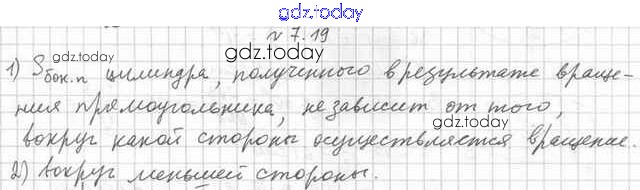 gdz.today
№ 7.19
gdz.today
gdz.today
1) Sбок.п цилиндра, полученного в результате враще-
ния прямоугольника, не зависит от того,
gdz.today
вокруг какой стороны осуществляется вращение.
2) вокруг меньшей стороны.